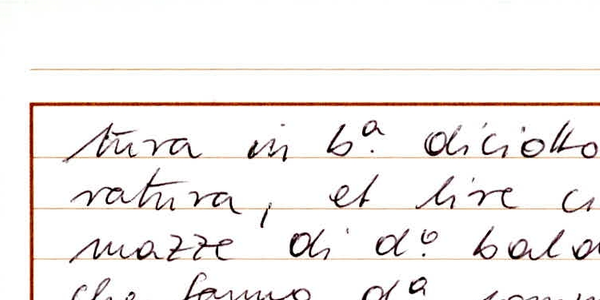 tura in b.ª diciotto
ratura, et lire
mazze di d.º
che fanno d.ª